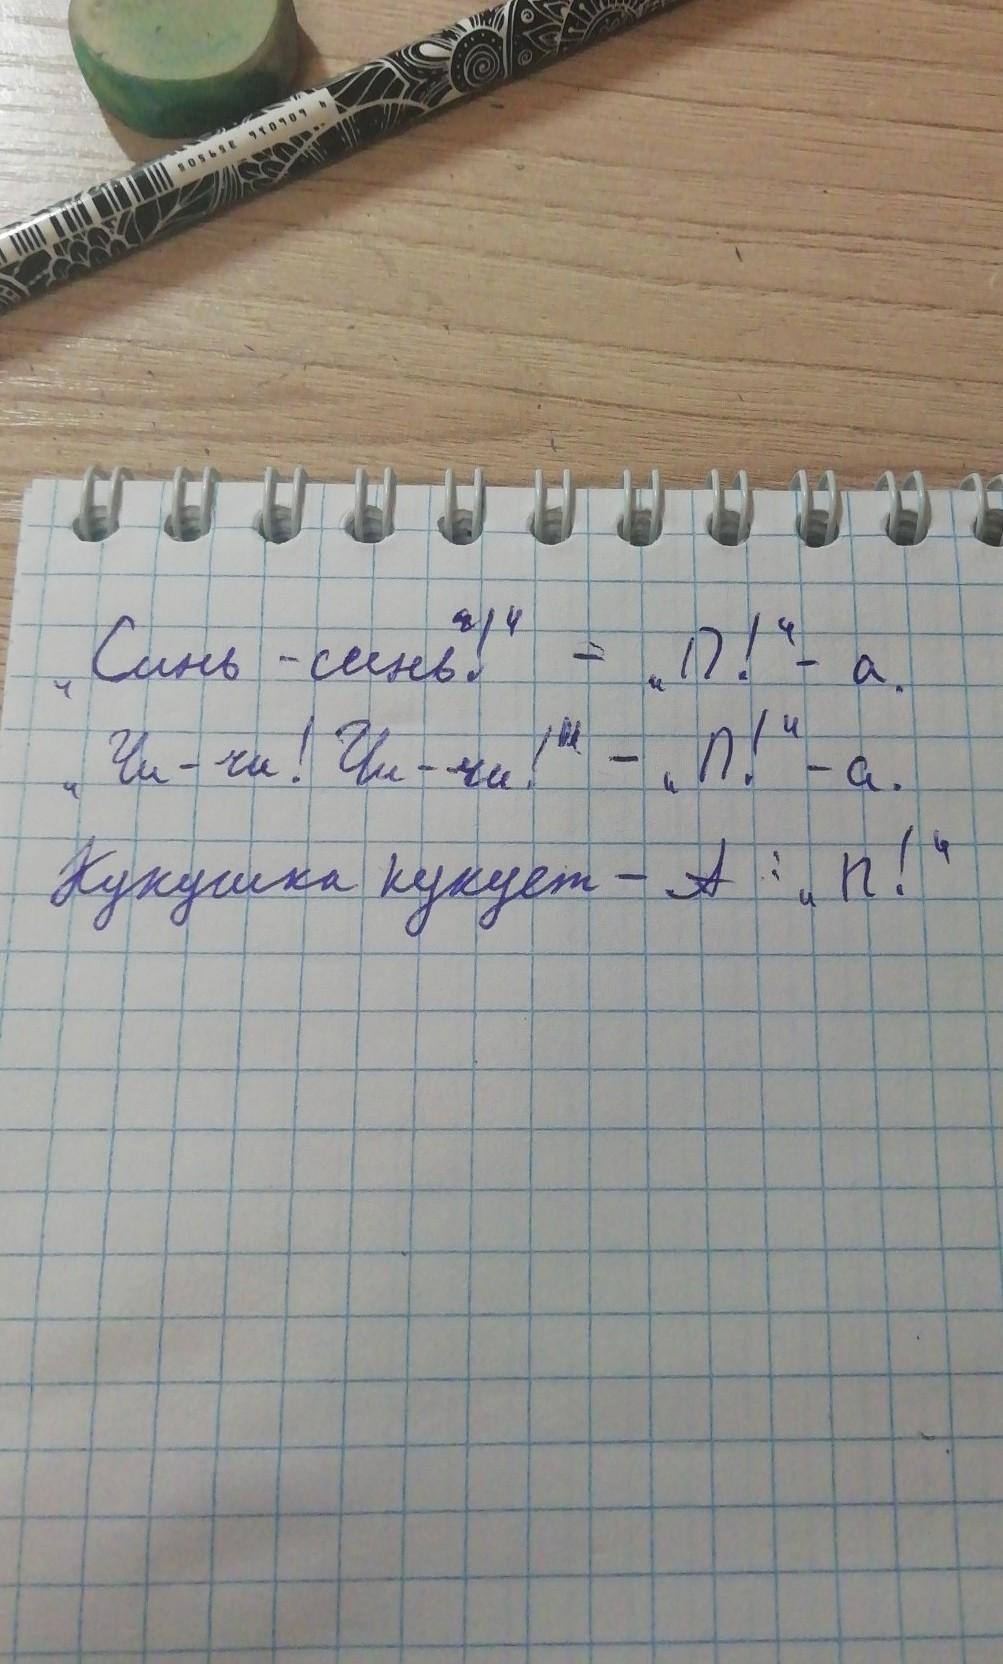 80565E 940904
„Синь - синь!“ - „П!“ - а.
„Чи - чи! Чи - чи!“ - „П!“ - а.
Кукушка кукует - А : „П!“